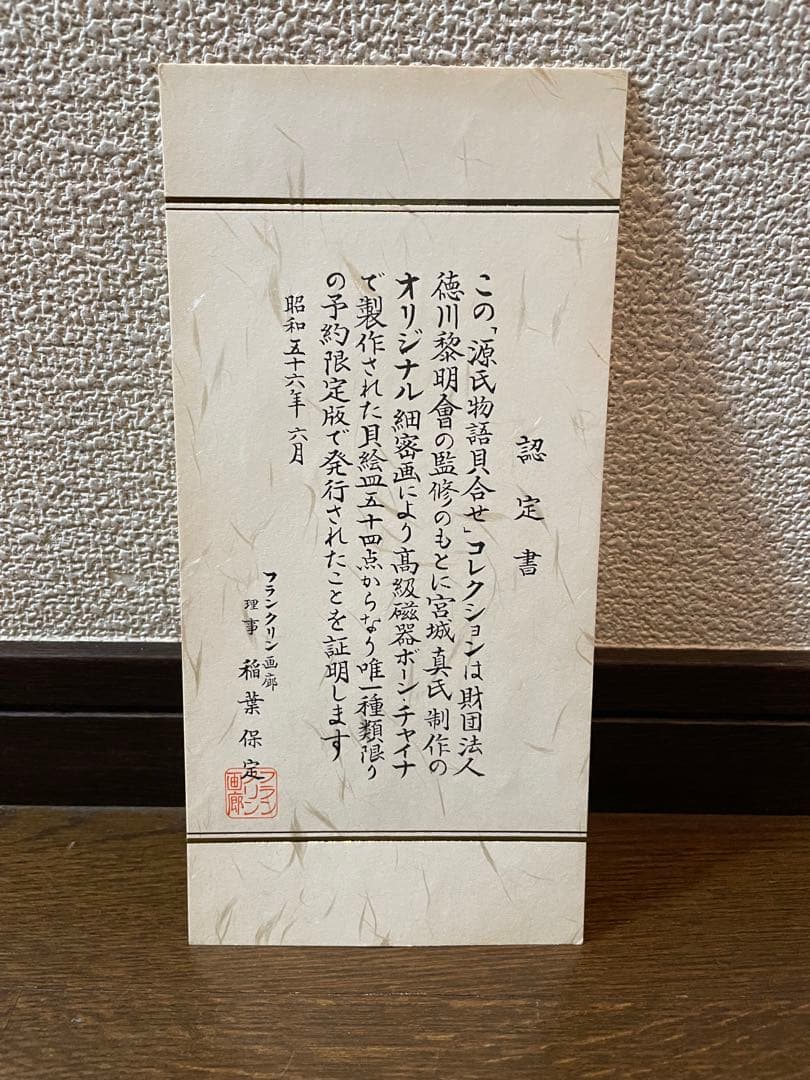 認定書
この「源氏物語貝合せ」コレクションは財団法人
徳川黎明會の監修のもとに宮城真氏制作の
オリジナル細密画により高級磁器ボーン・チャイナ
で製作された貝絵皿五十四点からなり唯一種類限り
の予約限定版で発行されたことを証明します
昭和五十六年六月
フランクリン画廊
理事 稲葉保定
フランクリン画廊